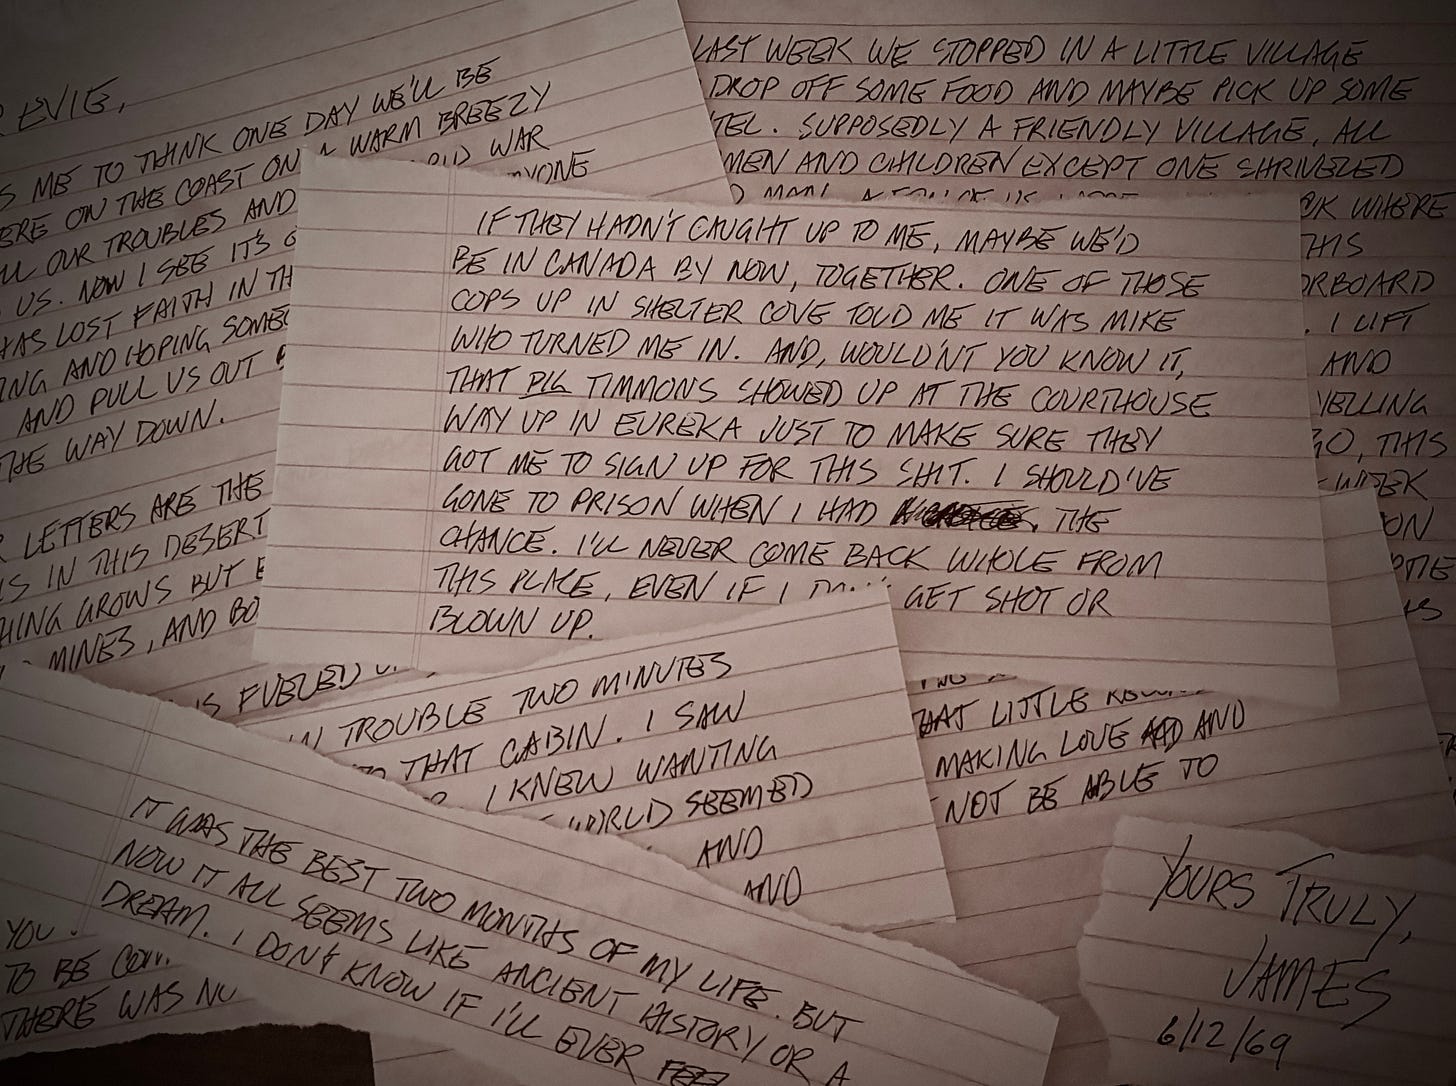 EVIE,
S ME TO THINK ONE DAY WE'LL BE
ERE ON THE COAST ON A WARM BREEZY
LL OUR TROUBLES AND WAR
US. NOW I SEE IT'S YONE
HAS LOST FAITH IN TH
ING AND HOPING SOMEO
AND PULL US OUT
THE WAY DOWN.
R LETTERS ARE THE
IS IN THIS DESERT
HING GROWS BUT
MINES, AND BO
IS FUELED
LAST WEEK WE STOPPED IN A LITTLE VILLAGE
DROP OFF SOME FOOD AND MAYBE PICK UP SOME
TEL. SUPPOSEDLY A FRIENDLY VILLAGE, ALL
MEN AND CHILDREN EXCEPT ONE SHRIVELED
WHERE
THIS
ORBOARD
. I LIFT
AND
YELLING
GO, THIS
WEEK
ON
IF THEY HADN'T CAUGHT UP TO ME, MAYBE WE'D
BE IN CANADA BY NOW, TOGETHER. ONE OF THOSE
COPS UP IN SHELTER COVE TOLD ME IT WAS MIKE
WHO TURNED ME IN. AND, WOULDN'T YOU KNOW IT,
THAT PIG TIMMONS SHOWED UP AT THE COURTHOUSE
WAY UP IN EUREKA JUST TO MAKE SURE THEY
GOT ME TO SIGN UP FOR THIS SHIT. I SHOULD'VE
GONE TO PRISON WHEN I HAD THE
CHANCE. I'LL NEVER COME BACK WHOLE FROM
THIS PLACE, EVEN IF I DON'T GET SHOT OR
BLOWN UP.
IN TROUBLE TWO MINUTES
THAT CABIN. I SAW
I KNEW WANTING
WORLD SEEMED
AND
AND
THAT LITTLE
MAKING LOVE AND
NOT BE ABLE TO
IT WAS THE BEST TWO MONTHS OF MY LIFE. BUT
NOW IT ALL SEEMS LIKE ANCIENT HISTORY OR A
DREAM. I DON'T KNOW IF I'LL EVER
YOU
TO BE
THERE WAS NO
YOURS TRULY,
JAMES
6/12/69